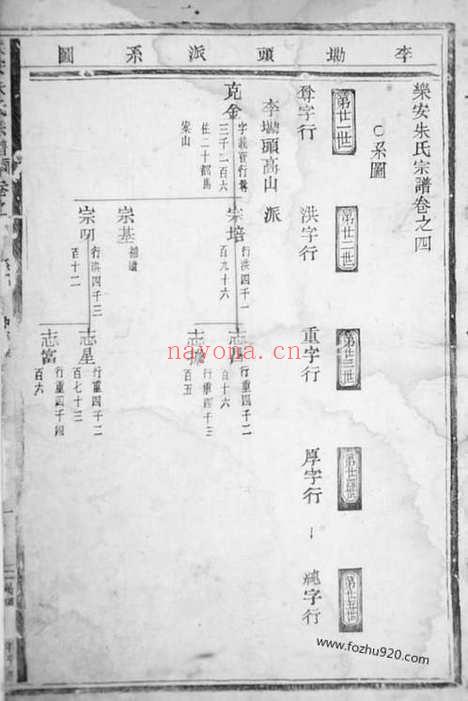 李坳頭派系圖
樂安朱氏宗譜卷之四
○系圖
第廿一世
第廿二世
第廿三世
第廿四世
第廿五世
尊字行
洪字行
重字行
厚字行
純字行
李坳頭高山派
克金
三千二百六
住二十都馬
案山
宗培
行洪四千一
百九十六
宗基
宗明
行洪四千三
百十二
行重四千二
百十六
行重四千三
百五
志星
行重四千二
百七十三
志富
行重四千四
百六
nayona.cn
www.fozhu920.com